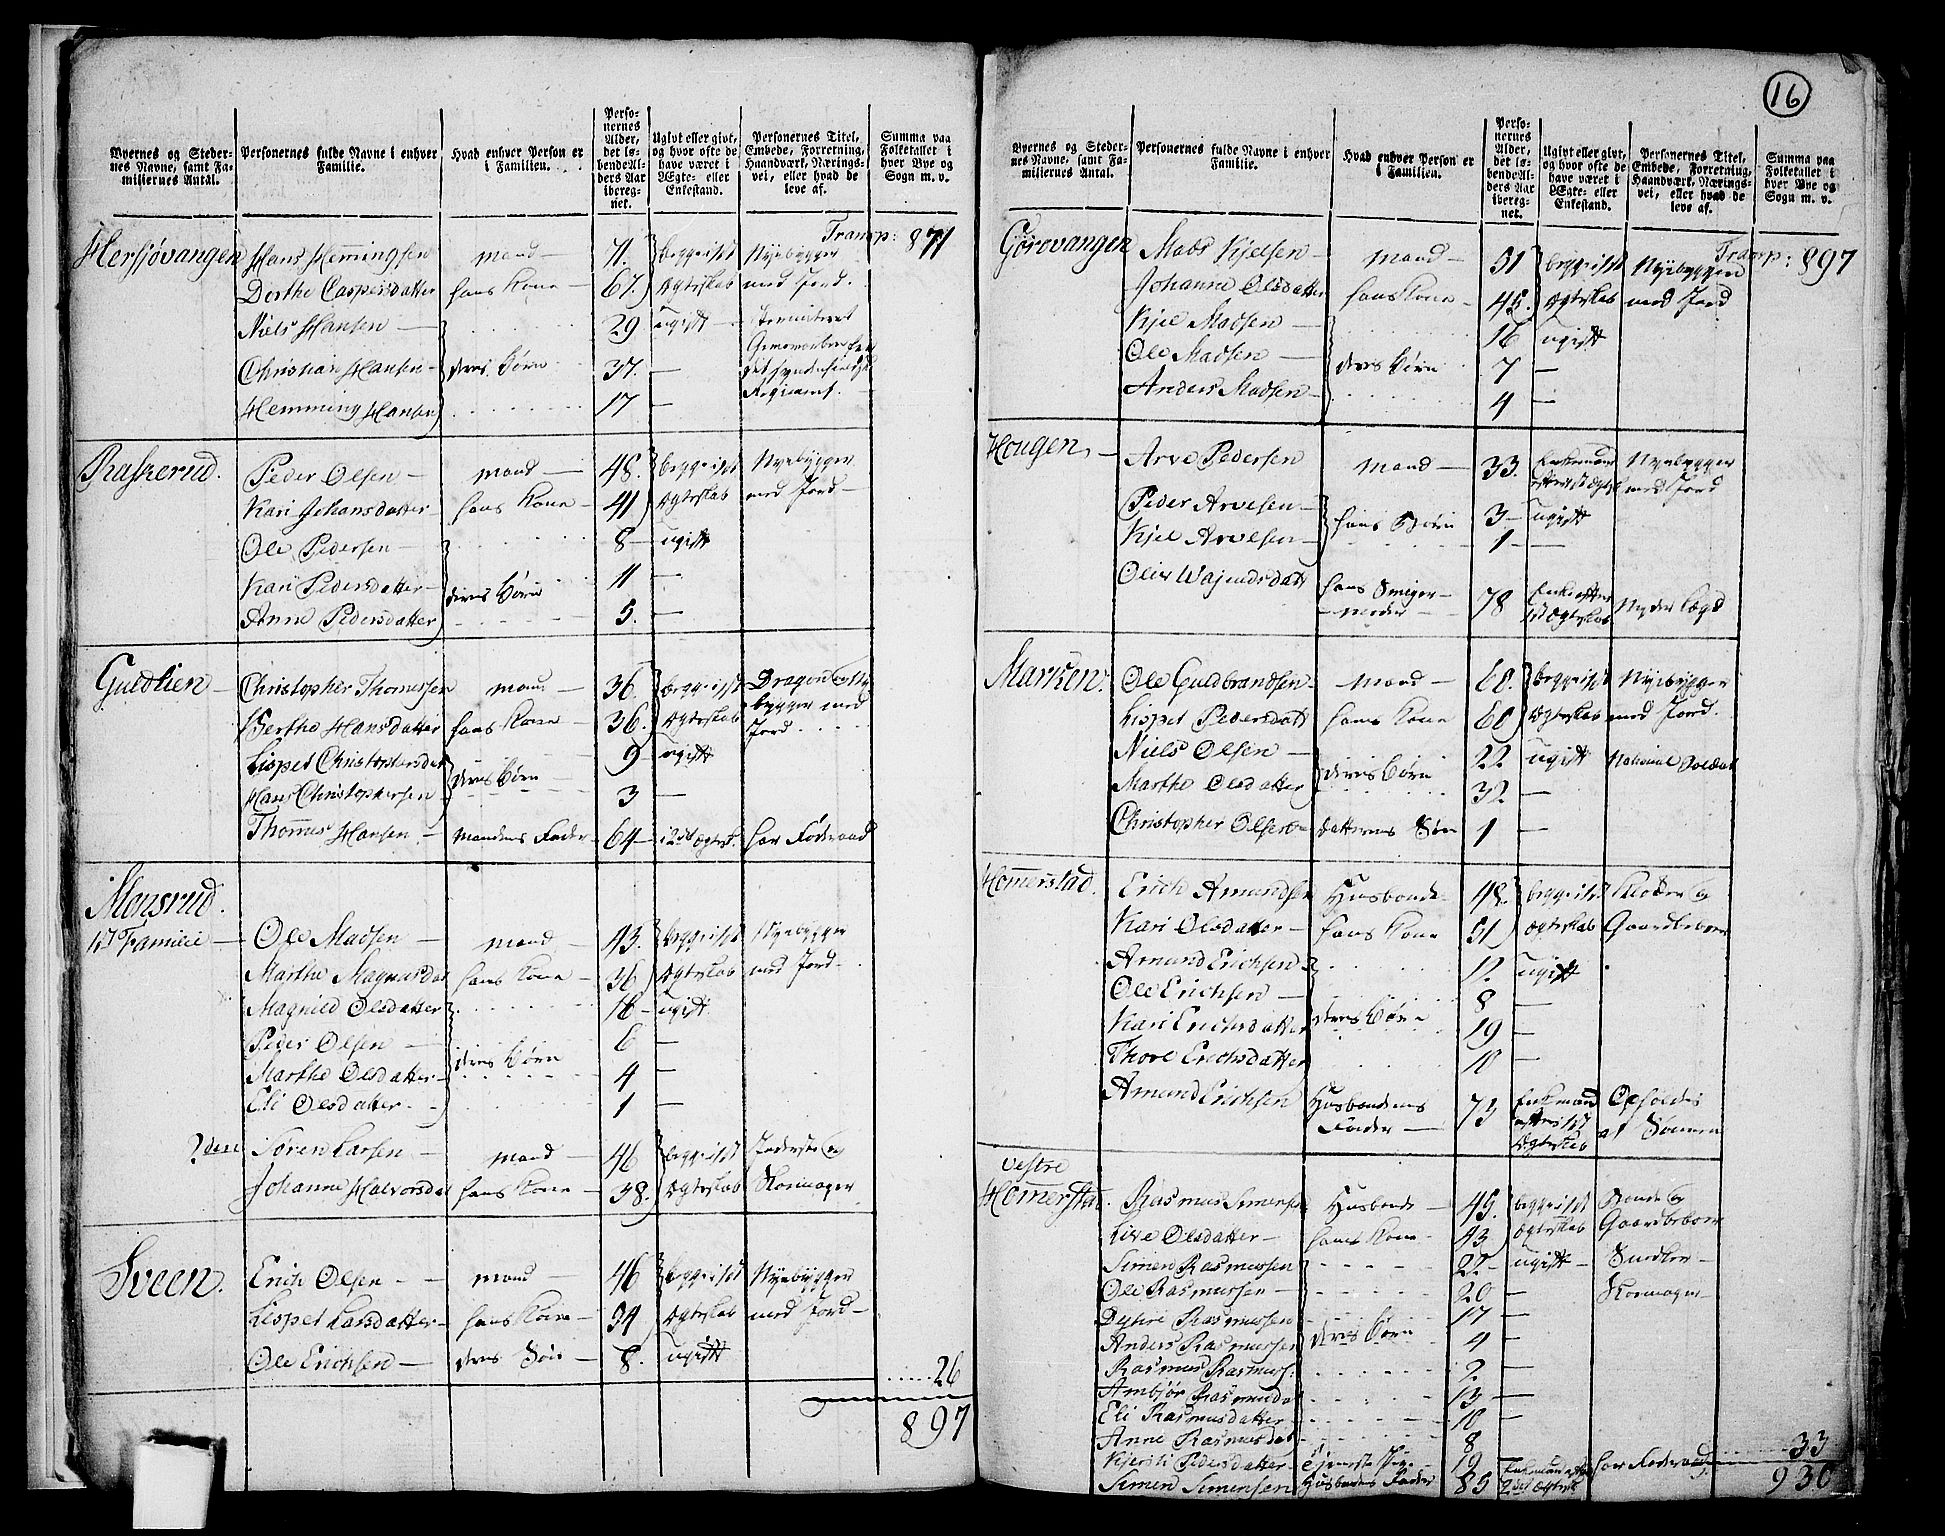 16
Byernes og Steder-
nes Navne, samt Fa-
miliernes Antal.
Personernes fulde Navne i enhver
Familie.
Hvad enhver Person er
i Familien.
Perso-
nernes
Alder,
det lø-
bende Al-
ders Aar
ibereg-
net.
Ugivt eller givt,
og hvor ofte de
have været i
Ægte- eller
Enkestand.
Personernes Titel,
Embede, Forretning,
Haandværk, Nærings-
vei, eller hvad de
leve af.
Summa paa
Folketallet i
hver Bye og
Sogn m. v.
Transp: 871
Hersjøvangen Hans Hemmingsen mand 71. begge i 1st Nyebygger
Dorthe Caspersdatter hans Kone 67. Ægteskab med Jord.
Niels Hansen 29 ugift
Christian Hansen deres Børn 37. Regiment.
Hemming Hansen 17
Raskerud. Peder Olsen mand 48. begge i 1st Nyebygger
Kari Johansdatter hans Kone 41 Ægteskab med Jord
Ole Pedersen 8 ugift
Kari Pedersdatter deres Børn 11
Anne Pedersdatter 5.
Guldlien Christopher Thomessen mand 36. begge i 1st Dragon og Ny-
Berthe Hansdatter hans Kone 36. Ægteskab bygger med
Lispet Christophersdat 9 ugift Jord
Hans Christophersen deres Børn 3
Thomes Hansen mandens Fader 64 i 2det Ægtesk. har Føderaad
Monsrud.
1st Familie Ole Madsen mand 43. begge i 1st Nyebygger
Marthe Magnusdat hans Kone 36 Ægteskab med Jord
Magnild Olsdatter 16 ugift
Peder Olsen 6
Marthe Olsdatter deres Børn 4
Eli Olsdatter 1
2den Søren Larsen mand 46 begge i 1st Inderste og
Johanne Halvorsdat hans Kone 38. Ægteskab Skomager
Sveen. Erich Olsen mand 46 begge i 1st Nyebygger
Lispet Larsdatter hans Kone 34 Ægteskab med Jord
Ole Erichsen deres Søn 8. ugift
26
897
Byernes og Steder-
nes Navne, samt Fa-
miliernes Antal.
Personernes fulde Navne i enhver
Familie.
Hvad enhver Person er
i Familien.
Perso-
nernes
Alder,
det lø-
bende Al-
ders Aar
ibereg-
net.
Ugivt eller givt,
og hvor ofte de
have været i
Ægte- eller
Enkestand.
Personernes Titel,
Embede, Forretning,
Haandværk, Nærings-
vei, eller hvad de
leve af.
Summa paa
Folketallet i
hver Bye og
Sogn m. v.
Transp: 897
Gørovangen Mads Kjelsen mand 51 begge i 1st Nyebygger
Johanne Olsdatter hans Kone 45. Ægteskab med Jord
Kjel Madsen 16 ugift
Ole Madsen deres Børn 7
Anders Madsen 4
Hougen, Arve Pedersen mand 33. Enkemand Nyebygger
efter 1st Ægtesk med Jord
Peder Arvesen hans Børn 3 ugift
Kjel Arvesen 1
hans Sviger-
moder 78 Enke efter
1st Ægteskab Nyder Lægd
Marken. Ole Guldbrandsen mand 68. begge i 1st Nyebygger
Lispet Pedersdatt hans Kone 60 Ægteskab med Jord.
Niels Olsen 22 ugift National Soldat
Marthe Olsdatter deres Børn 32
Christopher Olsen datterens Søn 1
Homerstad. Erich Amundsen Husbonde 48. begge i 1st Klokker og
Kari Olsdatter hans Kone 51 Ægteskab Gaardbeboer
Amund Erichsen 12 ugift
Ole Erichsen 8
Kari Erichsdatter deres Børn 19
Thore Erichsdatter 10
Amund Erichsen Husbondens
Fader 73 Enkemand
efter 1st
Ægteskab Opholdes
af Sønnen
Vestre
Homerstad. Rasmus Simensen Husbonde 45. begge i 1st Bonde og
Live Olsdatter hans Kone 43 Ægteskab Gaardbeboer
Simen Rasmussen 22 ugift Snedker
Ole Rasmussen 20 Skomager
Dyhre Rasmussen 17
Anders Rasmussen deres Børn 4
Rasmus Rasmuss: 2
Ambjør Rasmusdat 13
Eli Rasmusdatter 10
Anne Rasmusdat 8
Kjersti Pedersdatter Tjeneste Pige 19
Simen Simensen Husbondens Fader 85 Enkemand efter
2det Ægtesk har Føderaad
33
930